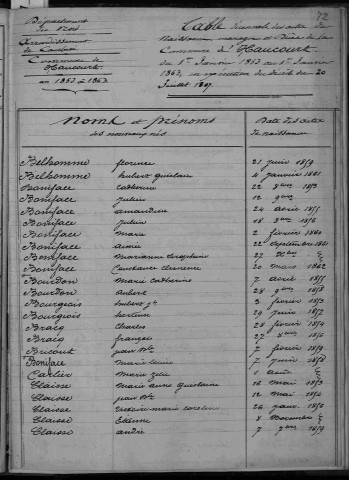 72
Département
du Nord
Arrondissement
de Cambrai
Commune de
Haucourt
an 1853 à 1863
Table décennale des actes de
Naissances, mariages et Décès de la
Commune d'Haucourt
du 1er Janvier 1853 au 1er Janvier
1863, en exécution du décret du 20
Juillet 1807.
Noms et prénoms
des nouveaux nés
Date des actes
de naissances
Belhomme florence 21 juin 1859
Belhomme hubert ghislain 4 janvier 1861
Boniface Catherine 22 1853
Boniface julien 12
Boniface amandine 24 avril 1855
Boniface julien 18 1856
Boniface marie 2 février 1860
Boniface aimée 22 septembre 1861
Boniface Marianne 27
Boniface Constance clémence 20 mars 1862
Bourdon Marie catherine 7 avril
Bourdon aubert 28 1858
Bourgeois hubert 3 février 1853
Bourgeois 29 juin 1857
Bracq Charles 28 février 1854
Bracq françois 27 1856
Bricout jean Bte 7 février 1859
Boniface Marie 7 juin 1858
Cartier Marie Zélie 1 août
Claisse Marie anne ghislaine 16 mai 1853
Claisse jean Bte 12 mai
Claisse 26 janv.
Claisse Etienne 8 Décembre
Claisse andré 7 9bre 1859